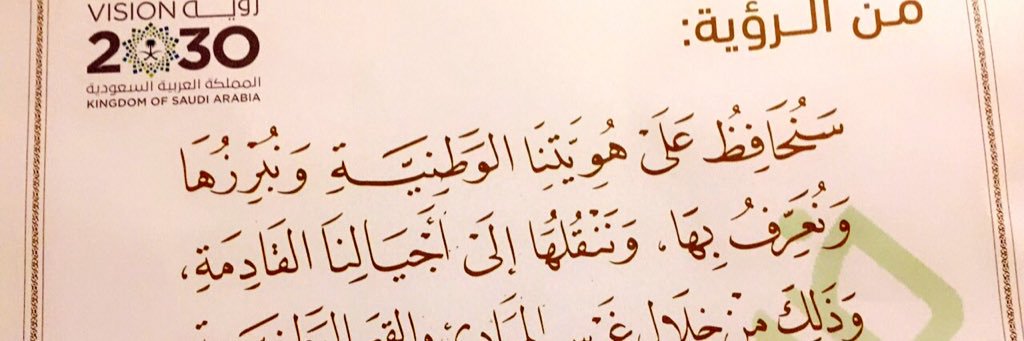 VISION رؤيــة
2030
المملكة العربية السعودية
KINGDOM OF SAUDI ARABIA
من الـرؤية:
سَنُحَافِظُ عَلَىٰ هُوِيَّتِنَا الوَطَنِيَّـــةِ وَنُبْرِزُهَا
وَنُعَرِّفُ بِهَا، وَنَنْقُلُهَا إِلَىٰ أَجْيَالِنَا القَادِمَةِ،
وَذَلِكَ مِنْ خلَالِ غَرْسِ المَبَادِئِ والقِيَمِ الوَطَنِيَّةِ